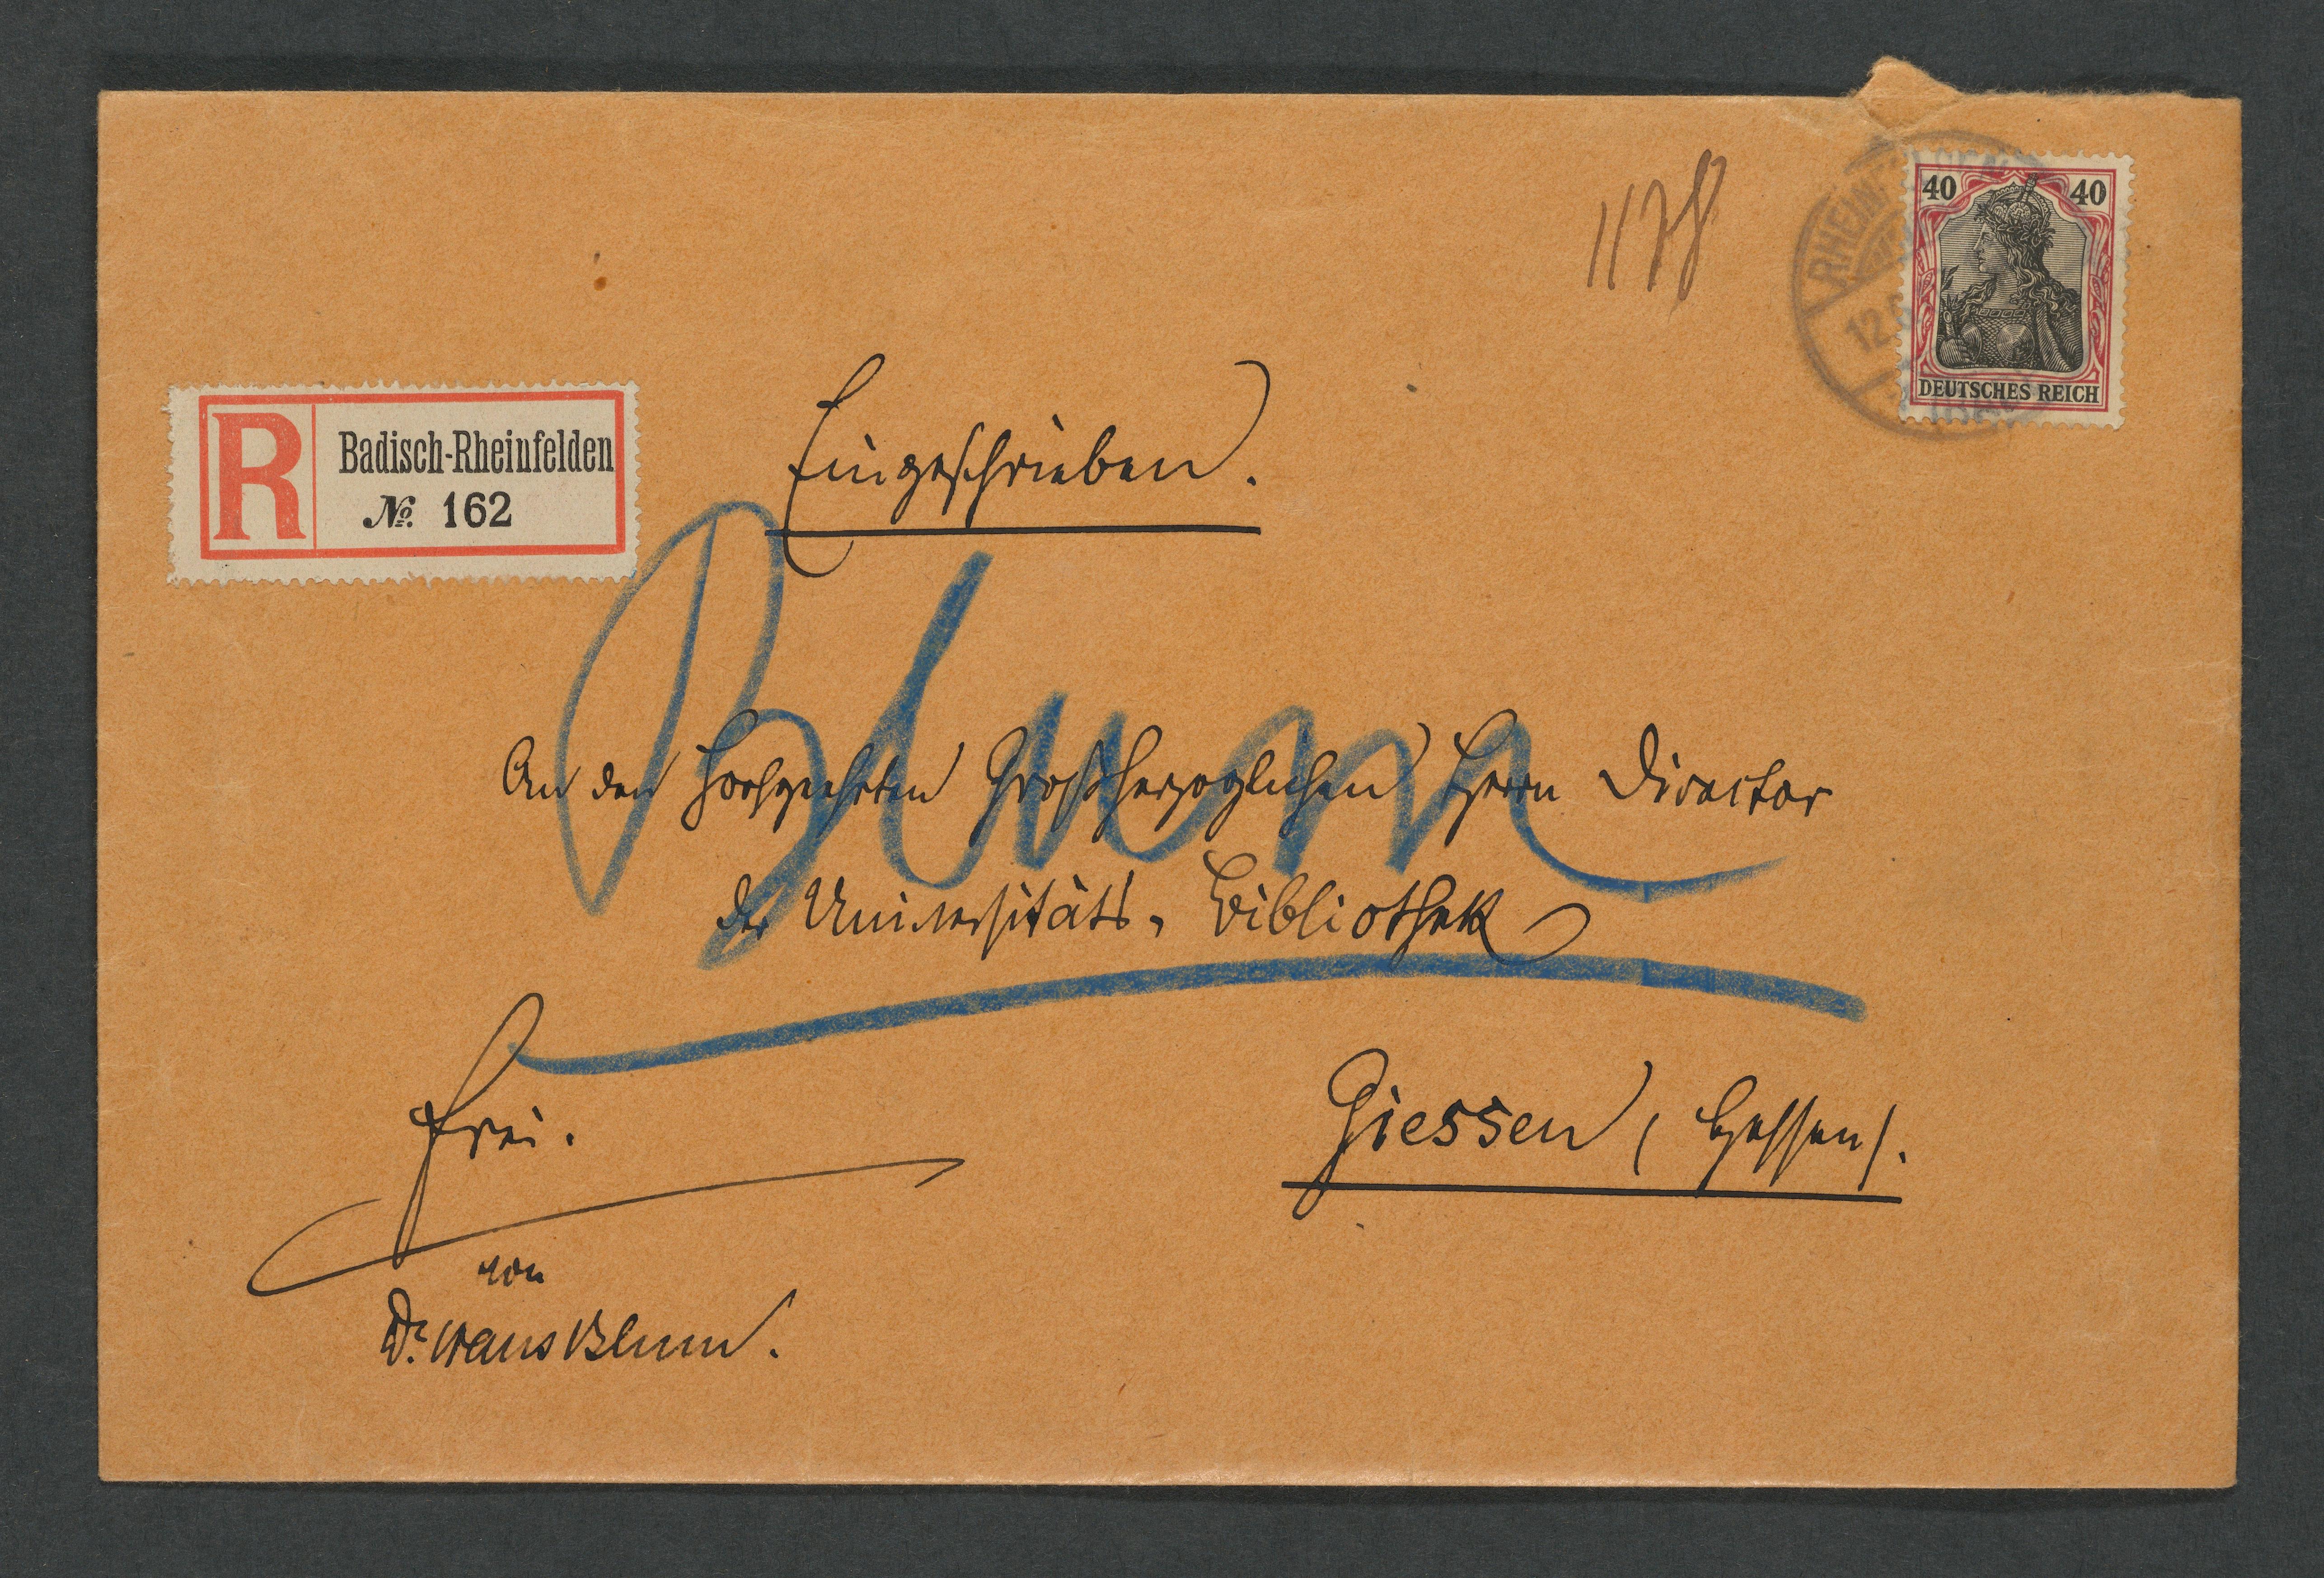 1178
40 40
DEUTSCHES REICH
RHEINF
12.
R
Badisch-Rheinfelden
№ 162
Eingeschrieben.
Blum
An den hochgeehrten Großherzoglichen Herrn Director
der Universitäts-Bibliothek
Frei.
Giessen (Hessen).
von
Dr. Hans Blum.